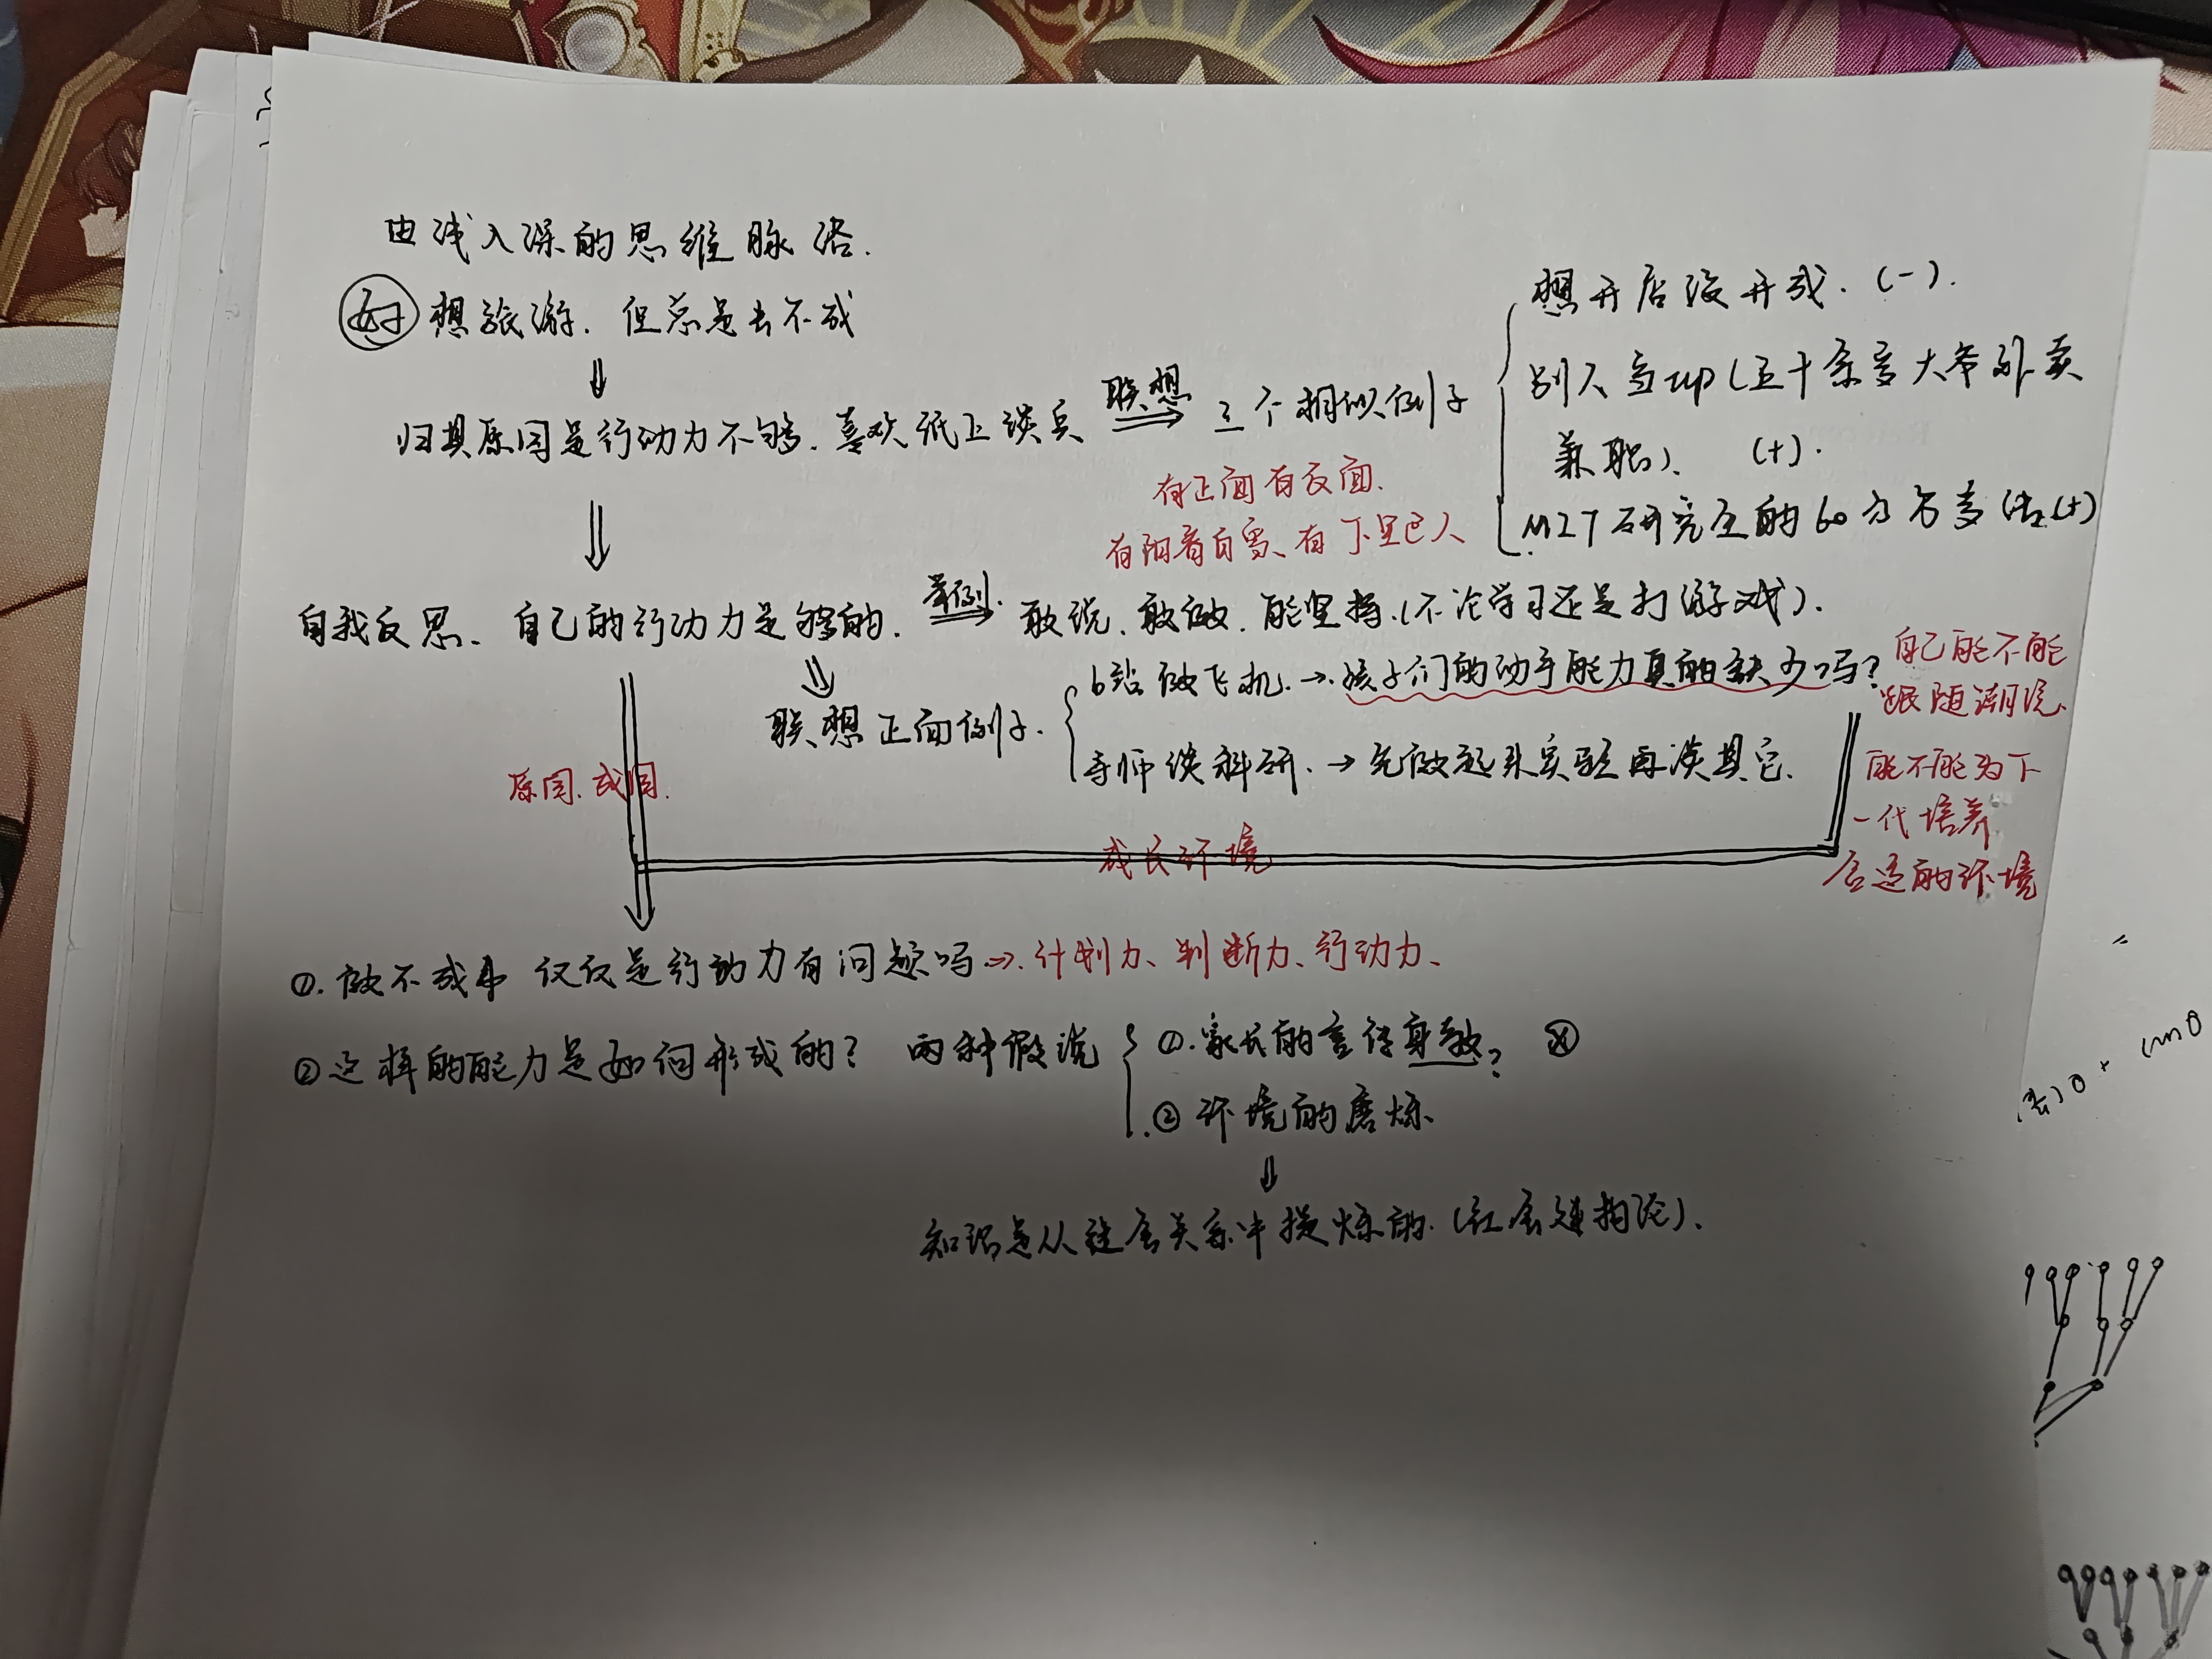 由浅入深的思维脉络.
好 想旅游. 但总是去不成
归其原因是行动力不够. 喜欢纸上谈兵 联想 三个相似例子
想开店没开成. (-).
别人当up(五十余多大爷外卖
兼职). (+).
MIT研究生的60分万多 (+)
有正面有反面.
有阳春白雪、有下里巴人
自我反思、自己的行动力是够的. 举例. 敢说、敢做. 能坚持.(不论学习还是打游戏).
联想正面例子.
b站做飞机. → 孩子们的动手能力真的缺少吗?
导师谈科研. → 先做起来实验再谈其它.
自己能不能
跟随潮流.
能不能为下
一代培养
合适的环境
原因. 成因.
成长环境
①. 做不成事 仅仅是行动力有问题吗 ⇒. 计划力、判断力、行动力、
② 这样的能力是如何形成的? 两种假说
①. 家长的言传身教? ⊗
② 环境的磨炼.
知识是从社会关系中提炼的. (社会建构论).